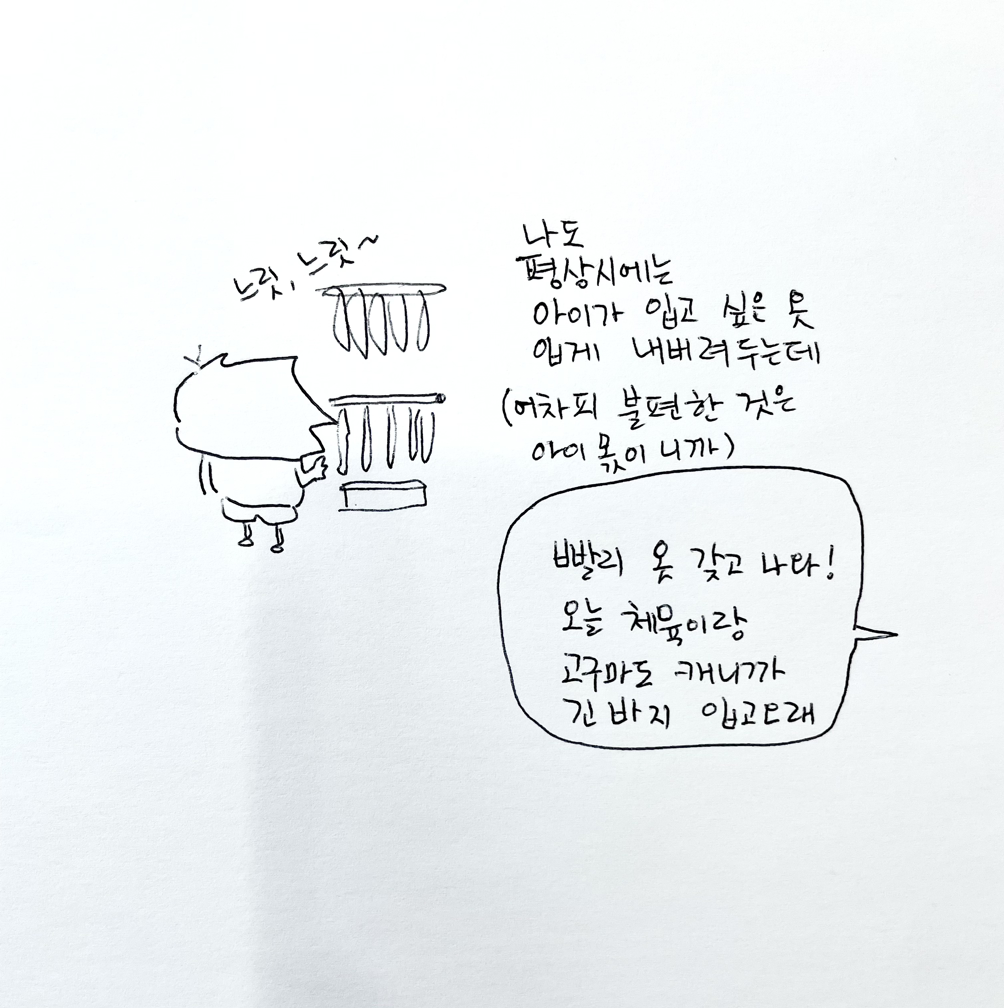 느릿, 느릿~
나도
평상시에는
아이가 입고 싶은 옷
입게 내버려두는데
(어차피 불편한 것은
아이 몫이니까)
빨리 옷 갖고 나와!
오늘 체육이랑
고구마도 캐니까
긴 바지 입고오래